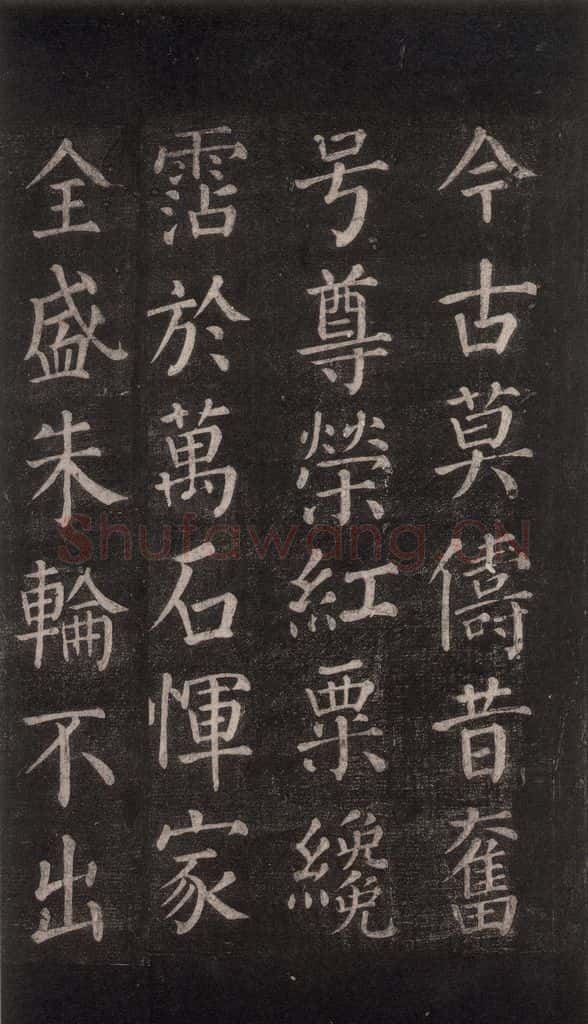 今古莫儔昔奮
号尊榮紅粟纔
霑於萬石惲家
全盛朱輪不出
Shufawang.CN